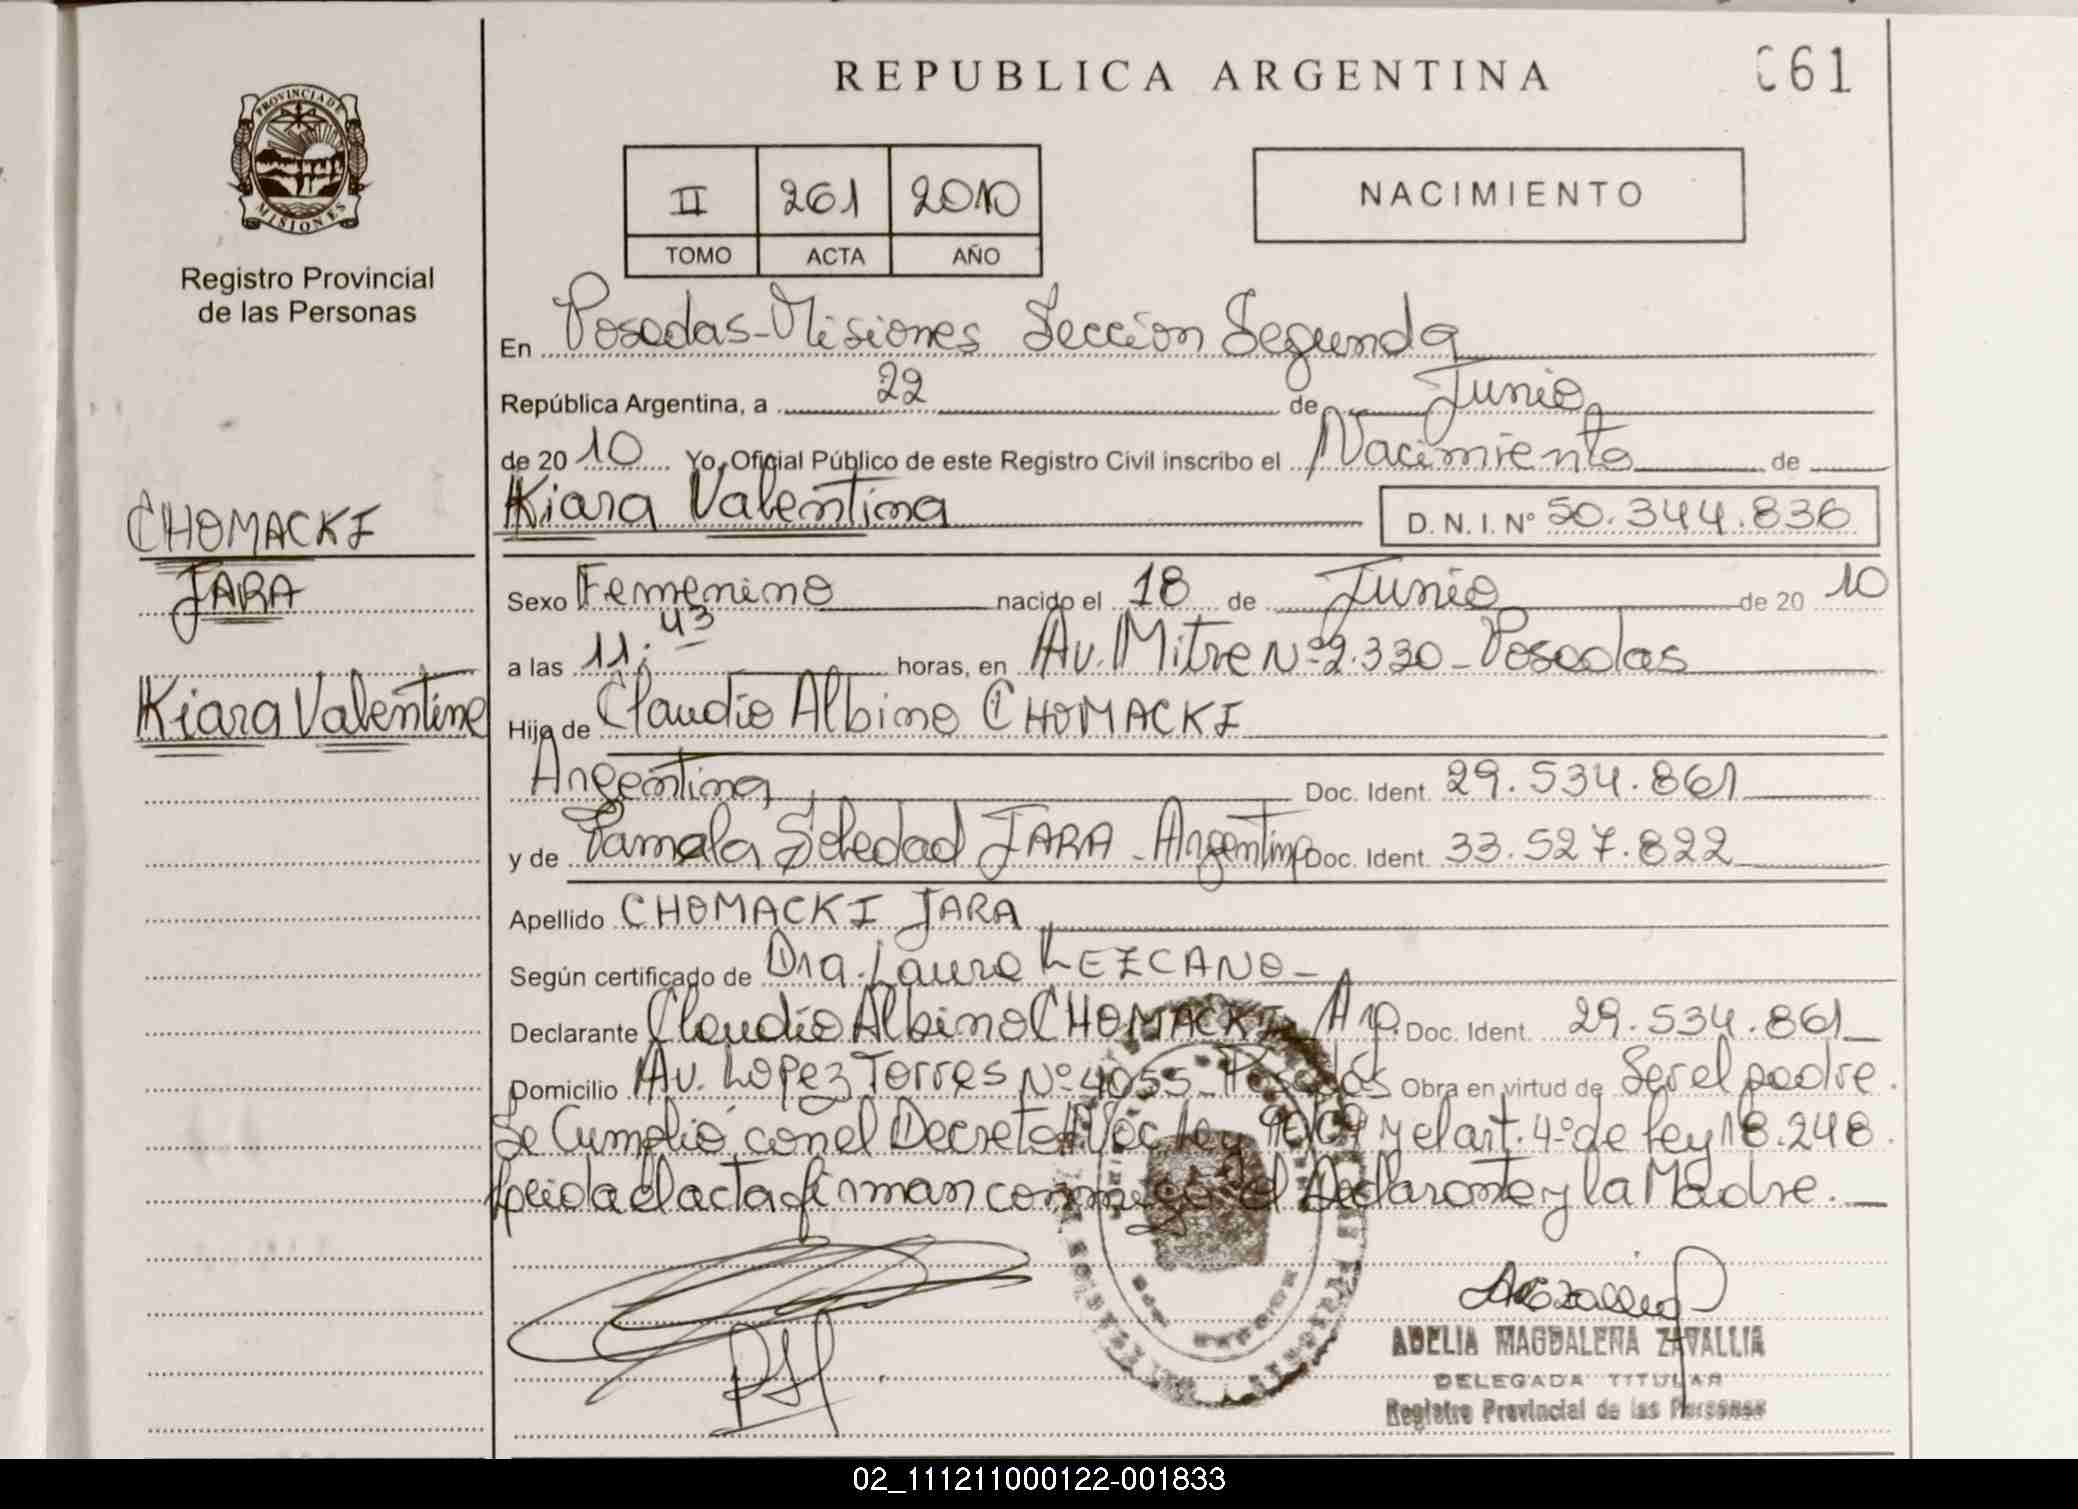 REPUBLICA ARGENTINA
C61
PROVINCIA DE
MISIONES
Registro Provincial
de las Personas
II 261 2010
TOMO ACTA AÑO
NACIMIENTO
En Posadas-Misiones Sección Segunda
República Argentina, a 22 de Junio
de 2010 Yo, Oficial Público de este Registro Civil inscribo el Nacimiento de
Kiara Valentina D. N. I. Nº 50.344.836
CHOMACKI
JARA
Kiara Valentina
Sexo Femenino nacido el 18 de Junio de 2010
a las 11:43 horas, en Av. Mitre Nº 2.330 - Posadas
Hija de Claudio Albino CHOMACKI
Argentina Doc. Ident. 29.534.861
y de Pamela Soledad JARA - Argentina Doc. Ident. 33.527.822
Apellido CHOMACKI JARA
Según certificado de Dra. Laura LEZCANO -
Declarante Claudio Albino CHOMACKI Arg. Doc. Ident. 29.534.861
Domicilio Av. Lopez Torres Nº 4055 - Posadas Obra en virtud de Ser el padre.
Se Cumplió con el Decreto Ley y el art. 4º de ley 18.248.
Leida el acta firman conmigo el Declarante y la Madre.
ADELIA MAGDALENA ZAVALLIA
DELEGADA TITULAR
Registro Provincial de las Personas
02_111211000122-001833